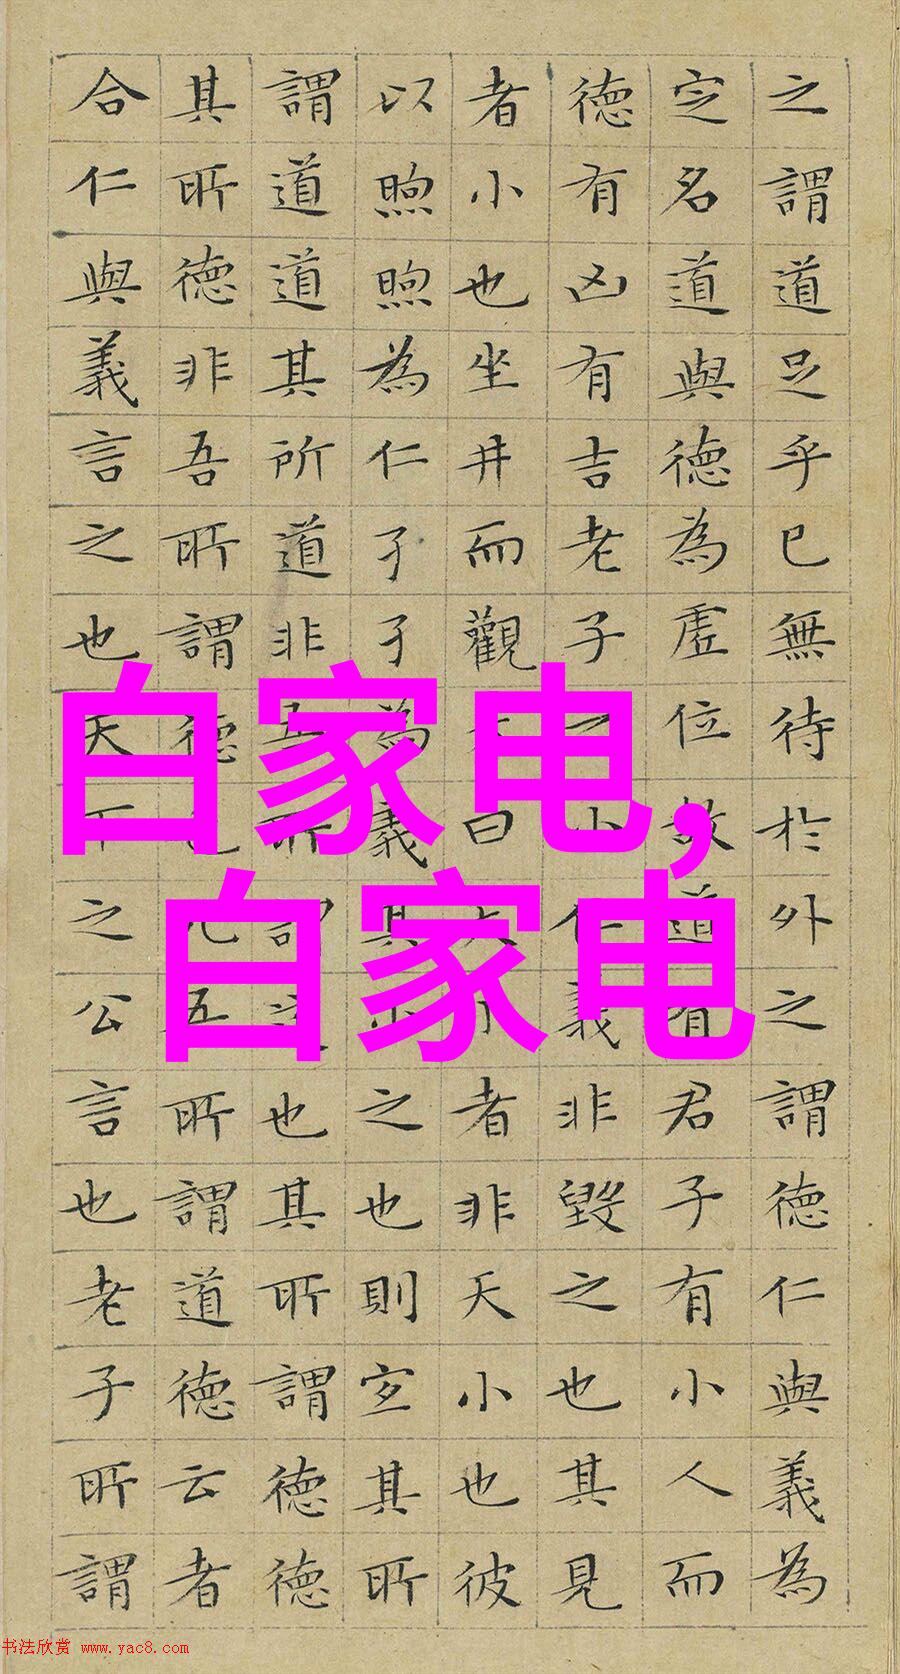 之謂道足乎已無待於外之謂德仁與義為
定名道與德為虛位故道有君子有小人而
德有凶有吉老子之小仁義非毀之也其見
者小也坐井而觀天曰天小者非天小也彼
以煦煦為仁孑孑為義其小之也則宜其所
謂道道其所道非吾所謂道也其所謂德德
其所德非吾所謂德也凡吾所謂道德云者
合仁與義言之也天下之公言也老子所謂
白家电,
白家电
书法欣赏 www.yac8.com